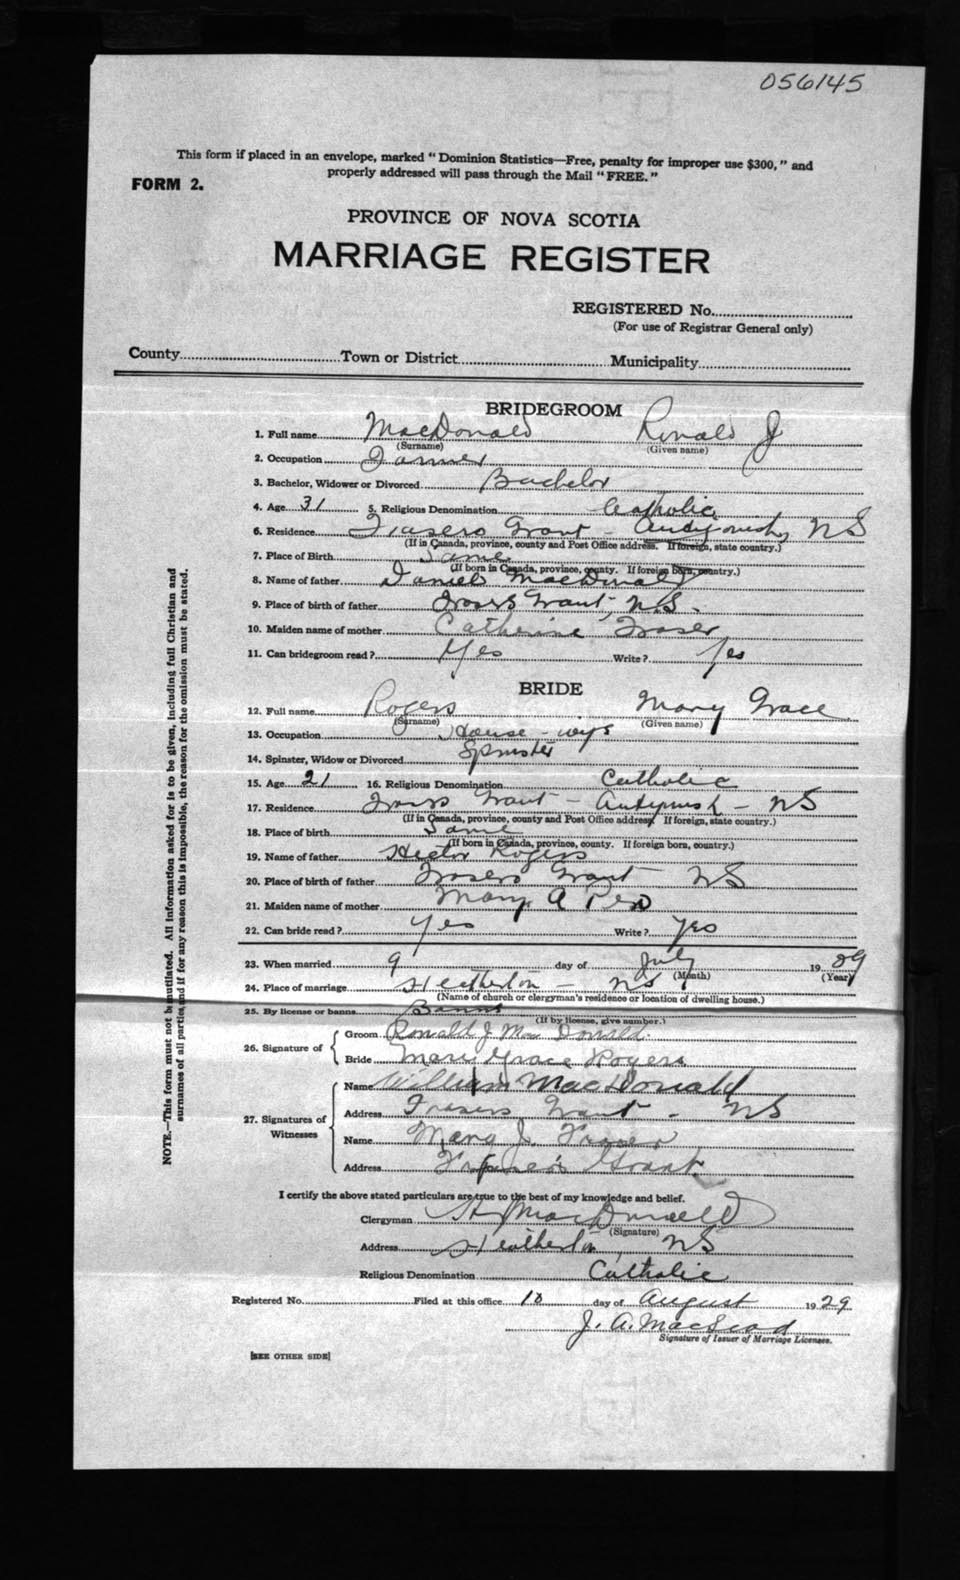 056145
This form if placed in an envelope, marked "Dominion Statistics—Free, penalty for improper use $300," and
properly addressed will pass through the Mail "FREE."
FORM 2.
PROVINCE OF NOVA SCOTIA
MARRIAGE REGISTER
REGISTERED No.
(For use of Registrar General only)
County Town or District Municipality
BRIDEGROOM
1. Full name MacDonald Ronald J
(Surname) (Given name)
2. Occupation Farmer
3. Bachelor, Widower or Divorced Bachelor
4. Age 31 5. Religious Denomination Catholic
6. Residence Frasers Grant Antigonish, NS
(If in Canada, province, county and Post Office address. If foreign, state country.)
7. Place of Birth Same
(If born in Canada, province, county. If foreign born, country.)
8. Name of father Daniel MacDonald
9. Place of birth of father Frasers Grant, N.S.
10. Maiden name of mother Catherine Fraser
11. Can bridegroom read? Yes Write? Yes
BRIDE
12. Full name Rogers Mary Grace
(Surname) (Given name)
13. Occupation House-
14. Spinster, Widow or Divorced Spinster
15. Age 21 16. Religious Denomination Catholic
17. Residence Frasers Grant - - NS
(If in Canada, province, county and Post Office address. If foreign, state country.)
18. Place of birth Same
(If born in Canada, province, county. If foreign born, country.)
19. Name of father Hector Rogers
20. Place of birth of father Frasers Grant NS
21. Maiden name of mother Mary A
22. Can bride read? Yes Write? Yes
23. When married 9 day of July 19
(Month) (Year)
24. Place of marriage Heatherton - NS
(Name of church or clergyman's residence or location of dwelling house.)
25. By license or banns Banns
(If by license, give number.)
26. Signature of
Groom Ronald J. MacDonald.
Bride Mary Grace Rogers
27. Signatures of Witnesses
Name William MacDonald
Address Frasers Grant - NS
Name Mary J. Fraser
Address Fraser's Grant
I certify the above stated particulars are true to the best of my knowledge and belief.
Clergyman MacDonald
(Signature)
Address Heatherton, NS
Religious Denomination Catholic
Registered No. Filed at this office 10 day of August 1929
J. A. MacLeod
Signature of Issuer of Marriage Licenses.
[SEE OTHER SIDE]
NOTE.—This form must not be mutilated. All information asked for is to be given, including full Christian and
surnames of all parties, and if for any reason this is impossible, the reason for the omission must be stated.